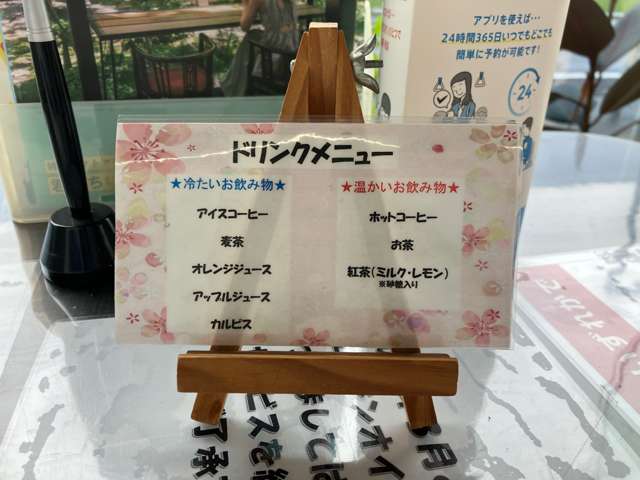 アプリを使えば…
24時間365日いつでもどこでも
簡単に予約が可能です!
24
ドリンクメニュー
★冷たいお飲み物★
アイスコーヒー
麦茶
オレンジジュース
アップルジュース
カルピス
★温かいお飲み物★
ホットコーヒー
お茶
紅茶(ミルク・レモン)
※砂糖入り
ずれかで